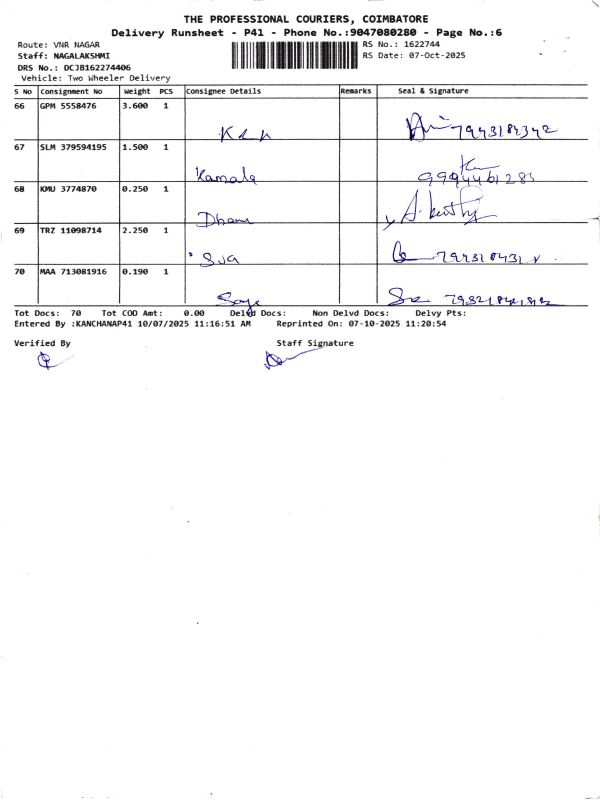 THE PROFESSIONAL COURIERS, COIMBATORE
Delivery Runsheet - P41 - Phone No.:9047080280 - Page No.:6
Route: VNR NAGAR
RS No.: 1622744
Staff: NAGALAKSHMI
RS Date: 07-Oct-2025
DRS No.: DCJB162274406
Vehicle: Two Wheeler Delivery
S No Consignment No Weight PCS Consignee Details Remarks Seal & Signature
66 GPM 5558476 3.600 1
67 SLM 379594195 1.500 1
Kamala
68 KMU 3774870 0.250 1
69 TRZ 11098714 2.250 1
70 MAA 713081916 0.190 1
Tot Docs: 70 Tot COD Amt: 0.00 Delvd Docs: Non Delvd Docs: Delvy Pts:
Entered By :KANCHANAP41 10/07/2025 11:16:51 AM Reprinted On: 07-10-2025 11:20:54
Verified By Staff Signature